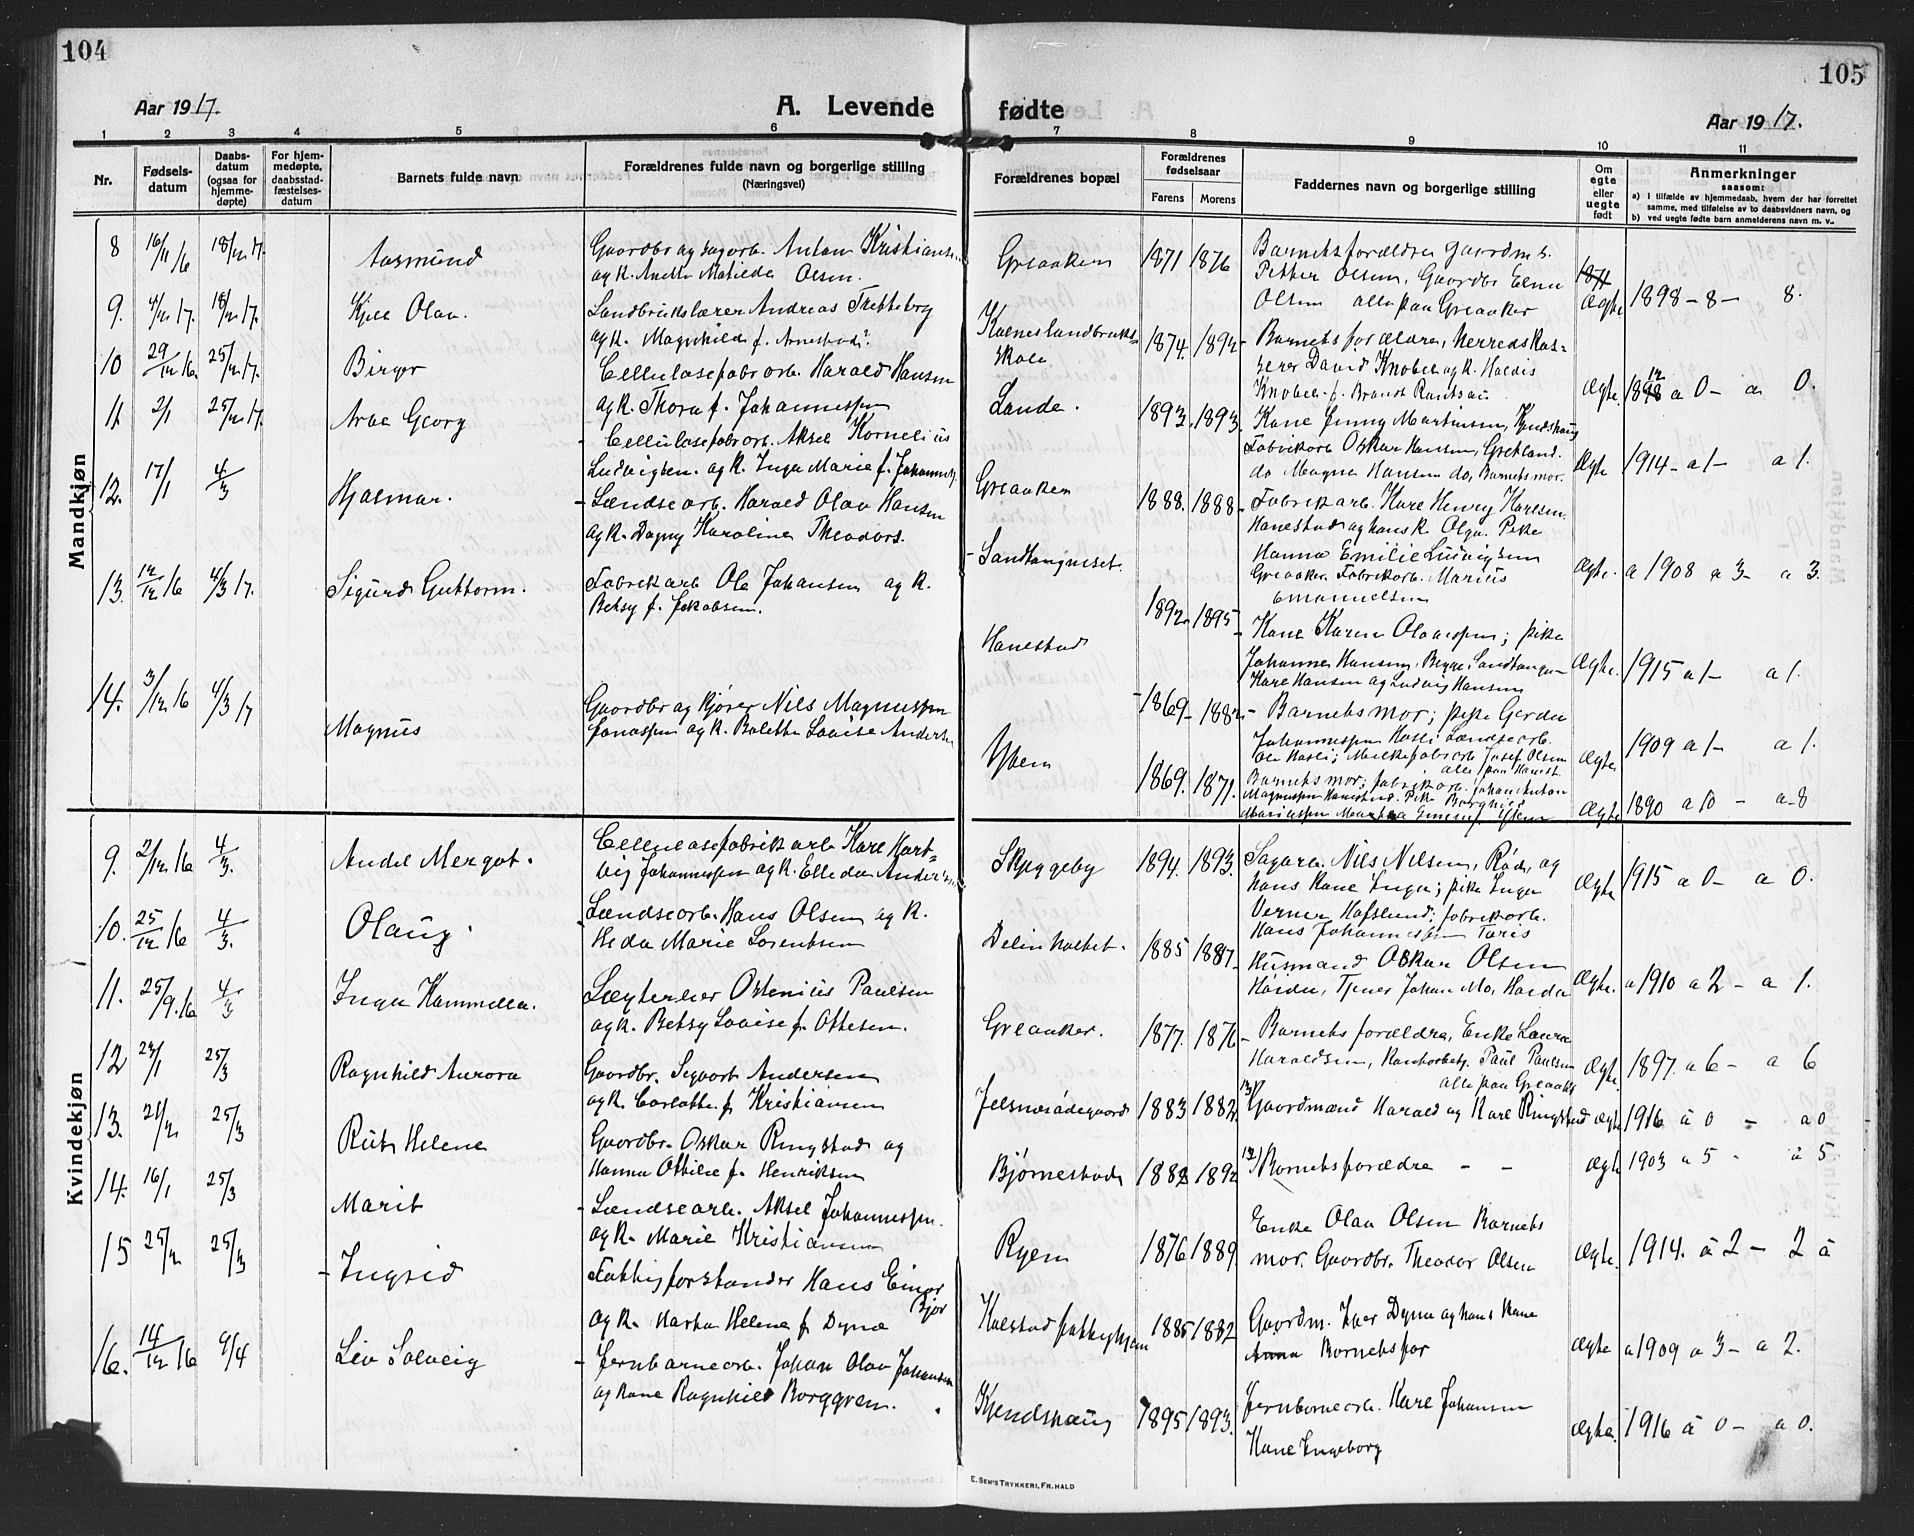 104
105
Aar 1917.
A. Levende fødte
Aar 1917.
1 2 3 4 5 6 7 8 9 10 11
Nr.
Fødsels-
datum
Daabs-
datum
(ogsaa for
hjemme-
døpte)
For hjem-
medøpte,
daabsstad-
fæstelses-
datum
Barnets fulde navn
Forældrenes fulde navn og borgerlige stilling
(Næringsvei)
Forældrenes bopæl
Forældrenes
fødselsaar
Farens
Morens
Faddernes navn og borgerlige stilling
Om
egte
eller
uegte
født
Anmerkninger
saasom:
a) i tilfælde av hjemmedaab, hvem der har forrettet
samme, med tilføielse av to daabsvidners navn, og
b) ved uegte fødte barn anmelderens navn m. v..
Mandkjøn
8 16/11 16 18/2 17. Aasmund
Gaardbr og sagarb. Anton Kristians
og K. Olsen.
Greaaken 1871 1876
Barnets forældre gaardm.
Petter Olsen, Gaardbr
Olsen alle paa Greaaker
Ægte 1898 - 8 - 8.
9. 4/12 17. 18/2 17. Kjell Olav.
Landbrukslærer Andreas Tretteberg
og K. Magnhild f. Arnestad?
Kalneslandbruks-
skole 1874. 1892
Barnets forældre, Herredskas-
serer David Knobel og K. Haldis
Knobel f. Brandt Rantzau
Ægte. a 0 - a 0.
10 29/12 16. 25/2 17. Birger
Cellulosefabr arb. Harald Hansen
og K. Thora f. Johannessen
Lande. 1893. 1893.
Kone Jenny Martinsen,
Fabrikarb Oskar Hansen, Grekland.
do Magna Hansen do, Barnets mor.
Ægte 1914 - a 1 - a 1.
11 2/1 25/2 17. Arne Georg
- Cellulosefabr arb. Aksel Kornelius
Ludvigsen. og K. Inga Marie f. Johannes
Greaaken 1888. 1888
- Fabrikarb. Karl Henry Karlsen.
Hanestad og hans K. Olga. Pike
Hanna Emilie Ludvigsen
Greaaker. Fabrikarb. Marius
Emanuelsen
Ægte. a 1908 a 3 - a 3.
12. 17/1 4/3 Hjalmar.
- Lændsearb. Harald Olav Hansen
og K. Dagny Karoline Theodors.
- Sandtangneset. 1892. 1895
- Kone Karen Olavessen; pike
Johanne Hansen. Begge Sandtangen
Karl Hansen og Ludvig Hansen
Ægte. 1915 a 1 - a 1.
13. 12/12 16 4/3 17. Sigurd Guttorm.
Fabrikarb Ole Johansen og K.
Betsy f. Jakobsen.
Hanestad - 1869 - 1882
- Barnets mor; pike Gerda
Johannessen Hasli Lændsearb.
Ole Hasli; Josef Olsen
alle paa Hanest.
Ægte 1909 a 1 - a 1.
14. 3/12 16 4/3 17 Magnus
Gaardbr og Kjører Nils Magnussen
Jonassen og K. Bolette Lovise Anders
Yven 1869. 1871.
Barnets mor; fabrikarb. Johan Anton
Magnussen Hanestad. Pike
Ægte 1890 a 10 - a 8
Kvindekjøn
9. 2/12 16 4/3. Andel Mergot.
Cellulosefabrik arb Karl Hart-
vig Johannessen og K. Elleda Anders
Skjeggeby 1894. 1893.
Sagarb. Nils Nilsen, Rød, og
hans Kone Inga; pike Inga
Verner Hafslund; fabrikarb.
Hans Johannessen Taris
Ægte 1915 a 0 - a 0.
10. 25/12 16 4/3. Olaug.
Lændsearb. Hans Olsen og K.
Heda Marie Lorentsen
Delinholtet. 1885 1887
- Husmand Oskar Olsen
Haidu, Tjener Johan Mo, Haida
Ægte. a 1910 a 2 - a 1.
11. 25/9.16 4/3 Inga Kammilla.
Lægterlier Ostenius Paulsen
og K. Betsy Lovise f. Ottesen.
Greaaker. 1877. 1876
- Barnets forældre, Enke Laura
Haraldsen, Paul Paulsen
alle paa Greaak
Ægte 1897. a 6 - a 6
12 29/1 25/3 Ragnhild Aurora
Gaardbr. Sigvart Andersen
og K. Carlotte f. Kristiansen
1883 1882
Gaardmænd Harald og Karl Ringstad
ægte 1916 à 0 - a 0
13. 21/2 25/3 Rut Helene
Gaardbr. Oskar Ringstad og
Hanna Ottilie f. Henriksen
Bjørnestad 1882 1892
Barnetsforældre - -
ægte 1903 a 5 - à 5
14. 16/1 25/3 Marit
- Lændsearb. Aksel Johannessen.
og K. Marie Kristiansen
Ryen 1876 1889.
Enke Olava Olsen Barnets
mor. Gaardbr. Theodor Olsen
Ægte 1914. à 2 - 2 à
15 25/2 25/3 - Ingrid
Fattigforstander Hans Einar
Bjør
og K. Marta Helene f. Dyne
Kalstad fattighjem 1885 1882
Gaardm. Iver Dyne og hans Kone
Anna Barnetsfor
ægte a 1909 a 3 - a 2.
16. 14/12 16 9/4 Liv Solveig
- Jernbanearb. Johan Olav Johansen
og Kone Ragnhild Borggren.
Kjendshaug 1895 1893.
Jernbanearb. Karl Johansen
Kone Ingeborg
Ægte. 1916 à 0 - a 0.
E. SEM'S TRYKKERI, FR.HALD